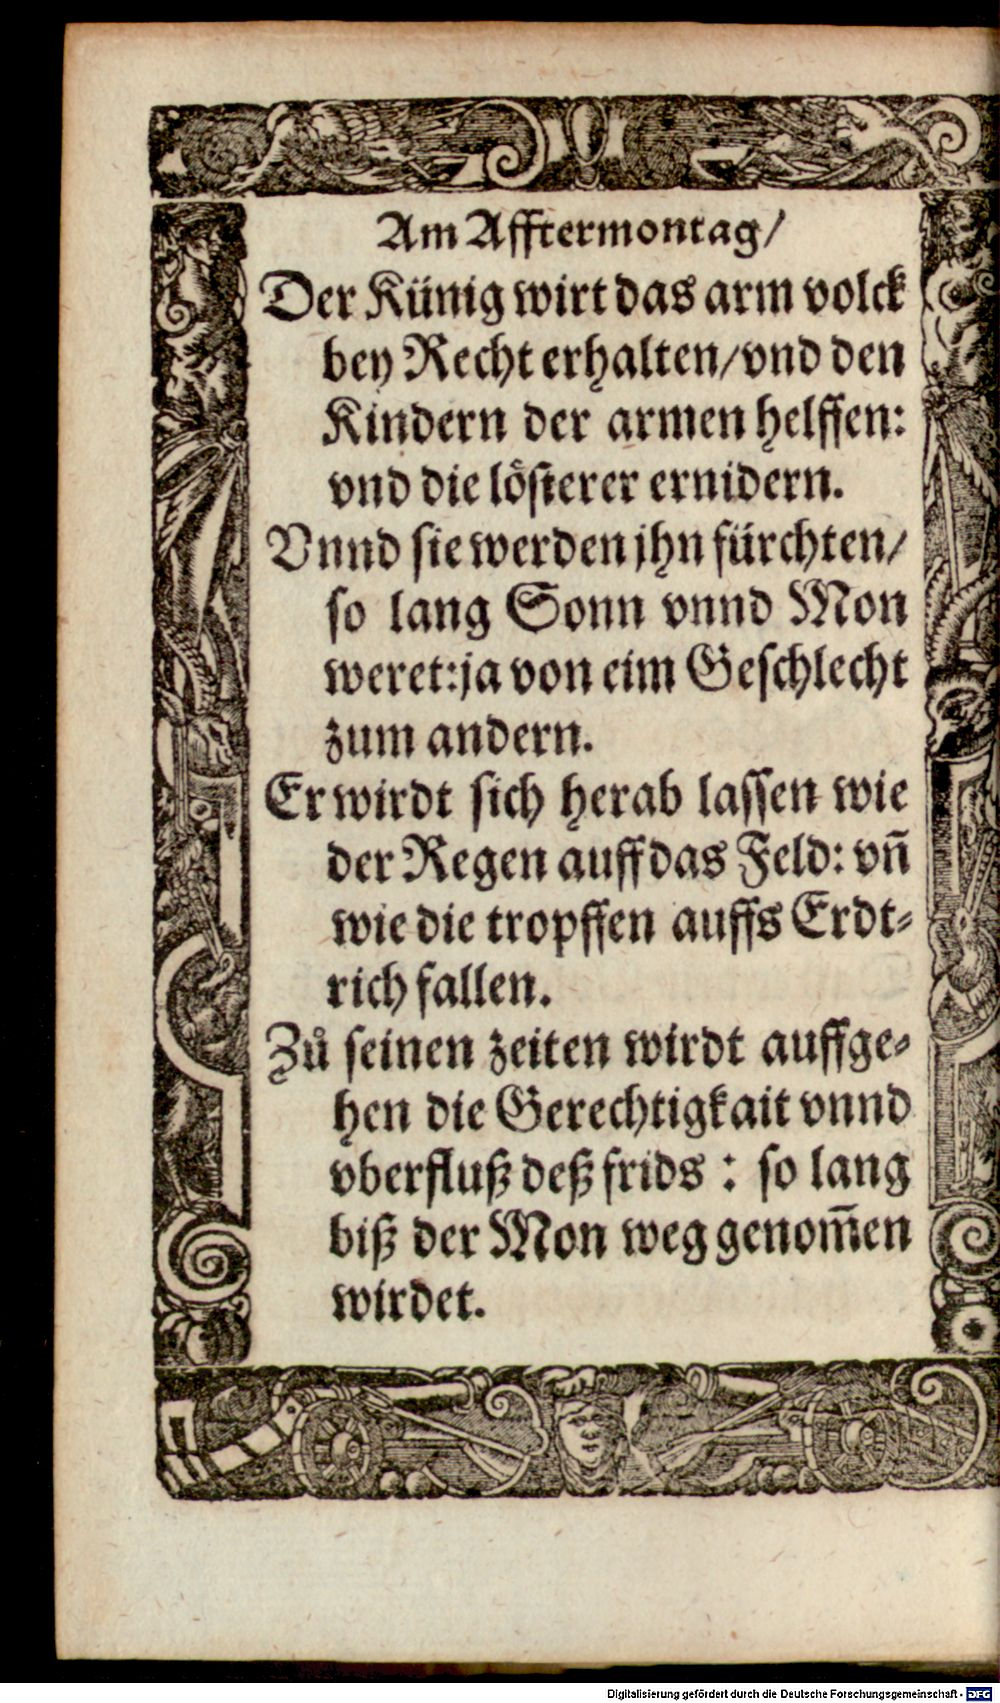 Am Afftermontag/
Der Künig wirt das arm volck
bey Recht erhalten/vnd den
Kindern der armen helffen:
vnd die lösterer ernidern.
Vnnd sie werden jhn fürchten/
so lang Sonn vnnd Mon
weret:ja von eim Geschlecht
zum andern.
Er wirdt sich herab lassen wie
der Regen auff das Feld: vn̄
wie die tropffen auffs Erdt⸗
rich fallen.
Zů seinen zeiten wirdt auffge⸗
hen die Gerechtigkait vnnd
vberfluß deß frids : so lang
biß der Mon weg genom̄en
wirdet.
Digitalisierung gefördert durch die Deutsche Forschungsgemeinschaft - DFG